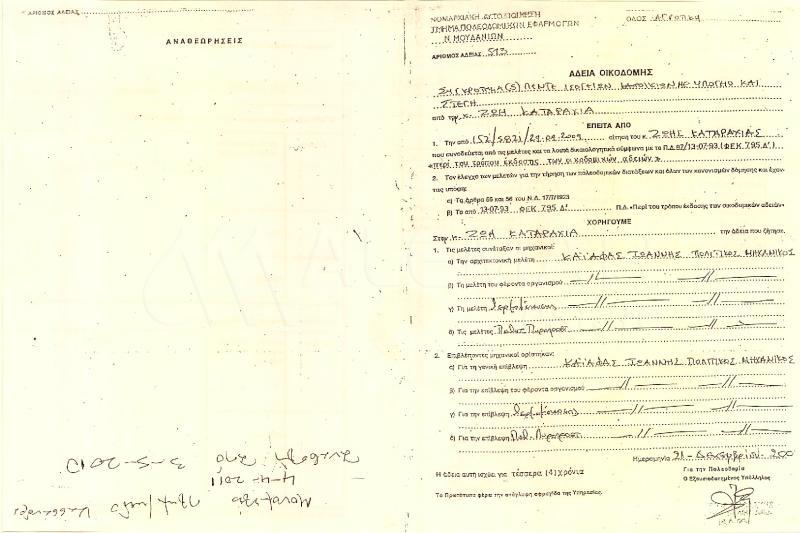 ΑΡΙΘΜΟΣ ΑΔΕΙΑΣ
ΑΝΑΘΕΩΡΗΣΕΙΣ
3-5-2010
4-4-2011
ΝΟΜΑΡΧΙΑΚΗ ΑΥΤΟΔΙΟΙΚΗΣΗ
ΤΜΗΜΑ ΠΟΛΕΟΔΟΜΙΚΩΝ ΕΦΑΡΜΟΓΩΝ
Ν ΜΟΥΔΑΝΙΩΝ
ΑΡΙΘΜΟΣ ΑΔΕΙΑΣ 513
ΟΔΟΣ
ΑΔΕΙΑ ΟΙΚΟΔΟΜΗΣ
ΠΕΝΤΕ ΙΣΟΓΕΙΩΝ ΚΑΤΟΙΚΙΩΝ ΜΕ ΥΠΟΓΕΙΟ ΚΑΙ
ΣΤΕΓΗ
από την κ. ΖΩΗ ΚΑΤΑΡΑΧΙΑ
ΕΠΕΙΤΑ ΑΠΟ
1. Την από αίτηση του κ. ΖΩΗΣ ΚΑΤΑΡΑΧΙΑΣ
που συνοδεύεται από τις μελέτες και τα λοιπά δικαιολογητικά σύμφωνα με το Π.Δ. 8/13-07-93 (ΦΕΚ 795 Δ')
«περί του τρόπου έκδοσης των οικοδομικών αδειών»
2. Τον έλεγχο των μελετών για την τήρηση των πολεοδομικών διατάξεων και όλων των κανονισμών δόμησης και έχοντας υπόψη:
α) Τα άρθρα 55 και 56 του Ν.Δ. 17/7/1923
β) Το από 13-07-93 ΦΕΚ 795 Δ' Π.Δ. «Περί του τρόπου έκδοσης των οικοδομικών αδειών»
ΧΟΡΗΓΟΥΜΕ
Στην κ. ΖΩΗ ΚΑΤΑΡΑΧΙΑ την άδεια που ζήτησε.
1. Τις μελέτες συνέταξαν οι μηχανικοί:
α) Την αρχιτεκτονική μελέτη ΚΑΪΑΦΑΣ ΙΩΑΝΝΗΣ ΠΟΛΙΤΙΚΟΣ ΜΗΧΑΝΙΚΟΣ
β) Τη μελέτη του φέροντα οργανισμού -//- -//-
γ) Τη μελέτη Θερμομόνωσης -//- -//-
δ) Τις μελέτες Παθητ. Πυρπροστ -//- -//-
2. Επιβλέποντες μηχανικοί ορίστηκαν:
α) Για τη γενική επίβλεψη ΚΑΪΑΦΑΣ ΙΩΑΝΝΗΣ ΠΟΛΙΤΙΚΟΣ ΜΗΧΑΝΙΚΟΣ
β) Για την επίβλεψη του φέροντα οργανισμού -//- -//-
γ) Για την επίβλεψη Θερμομόνωσης -//- -//-
δ) Για την επίβλεψη Παθ. Πυρπροστ -//- -//-
Ημερομηνία
Η άδεια αυτή ισχύει για τέσσερα (4) χρόνια
Για την Πολεοδομία
Ο Εξουσιοδοτημένος Υπάλληλος
Το Πρωτότυπο φέρει την στρόγγυλη σφραγίδα της Υπηρεσίας.